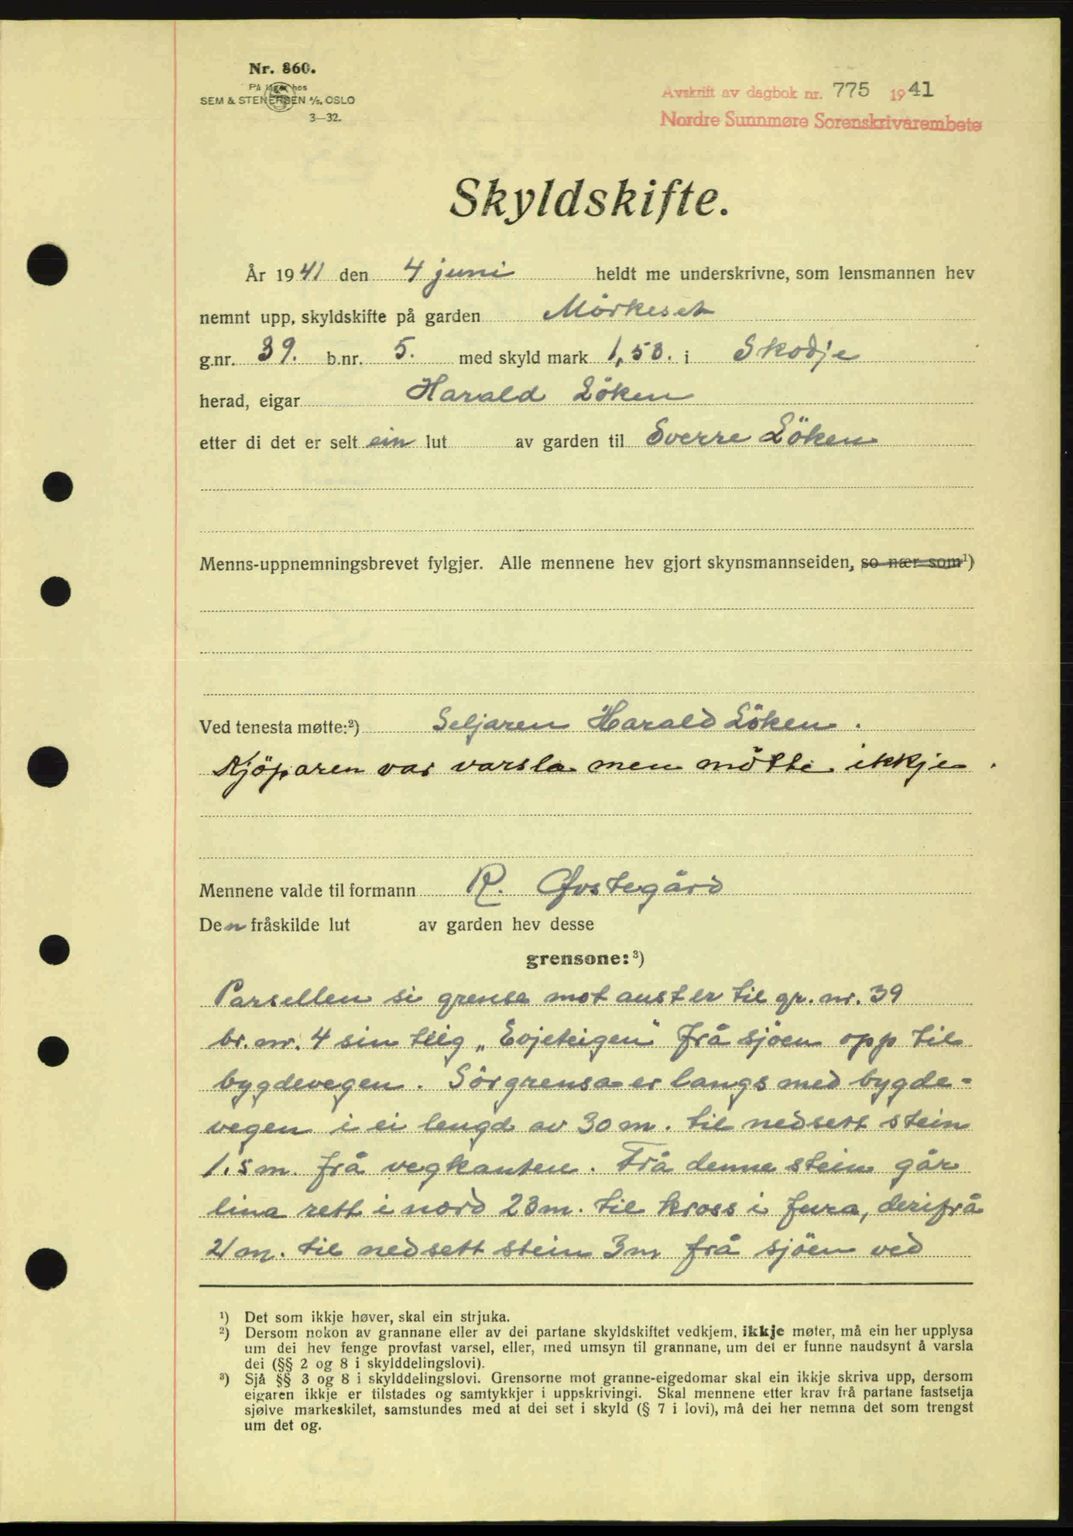 Nr. 860.
På lager hos
SEM & STENERSEN A/S, OSLO
3—32.
Avskrift av dagbok nr. 775 1941
Nordre Sunnmøre Sorenskrivarembete
Skyldskifte.
År 1941 den 4 juni heldt me underskrivne, som lensmannen hev
nemnt upp, skyldskifte på garden Mörkeset
g.nr. 39. b.nr. 5. med skyld mark 1,53. i Skodje
herad, eigar Harald Löken
etter di det er selt ein lut av garden til Sverre Löken
Menns-uppnemningsbrevet fylgjer. Alle mennene hev gjort skynsmannseiden, so nær som¹)
Ved tenesta møtte:²) Seljaren Harald Löken.
Kjöparen var varsla men mötte ikkje.
Mennene valde til formann R. Øvstegård
Den fråskilde lut av garden hev desse
grensone:³)
Parsellen si grense mot aust er til gr. nr. 39
br. nr. 4 sin teig „Evjeteigen" frå sjöen opp til
bygdevegen. Sörgrensa er langs med bygde-
vegen i ei lengd av 30 m. til nedsett stein
1.5 m. frå vegkanten. Frå denne stein går
lina rett i nord 23 m. til kross i fura, derifrå
21 m. til nedsett stein 3 m frå sjöen ved
¹) Det som ikkje høver, skal ein strjuka.
²) Dersom nokon av grannane eller av dei partane skyldskiftet vedkjem, ikkje møter, må ein her upplysa
um dei hev fenge provfast varsel, eller, med umsyn til grannane, um det er funne naudsynt å varsla
dei (§§ 2 og 8 i skylddelingslovi).
³) Sjå §§ 3 og 8 i skylddelingslovi. Grensorne mot granne-eigedomar skal ein ikkje skriva upp, dersom
eigaren ikkje er tilstades og samtykkjer i uppskrivingi. Skal mennene etter krav frå partane fastsetja
sjølve markeskilet, samstundes med at dei set i skyld (§ 7 i lovi), må dei her nemna det som trengst
um det og.